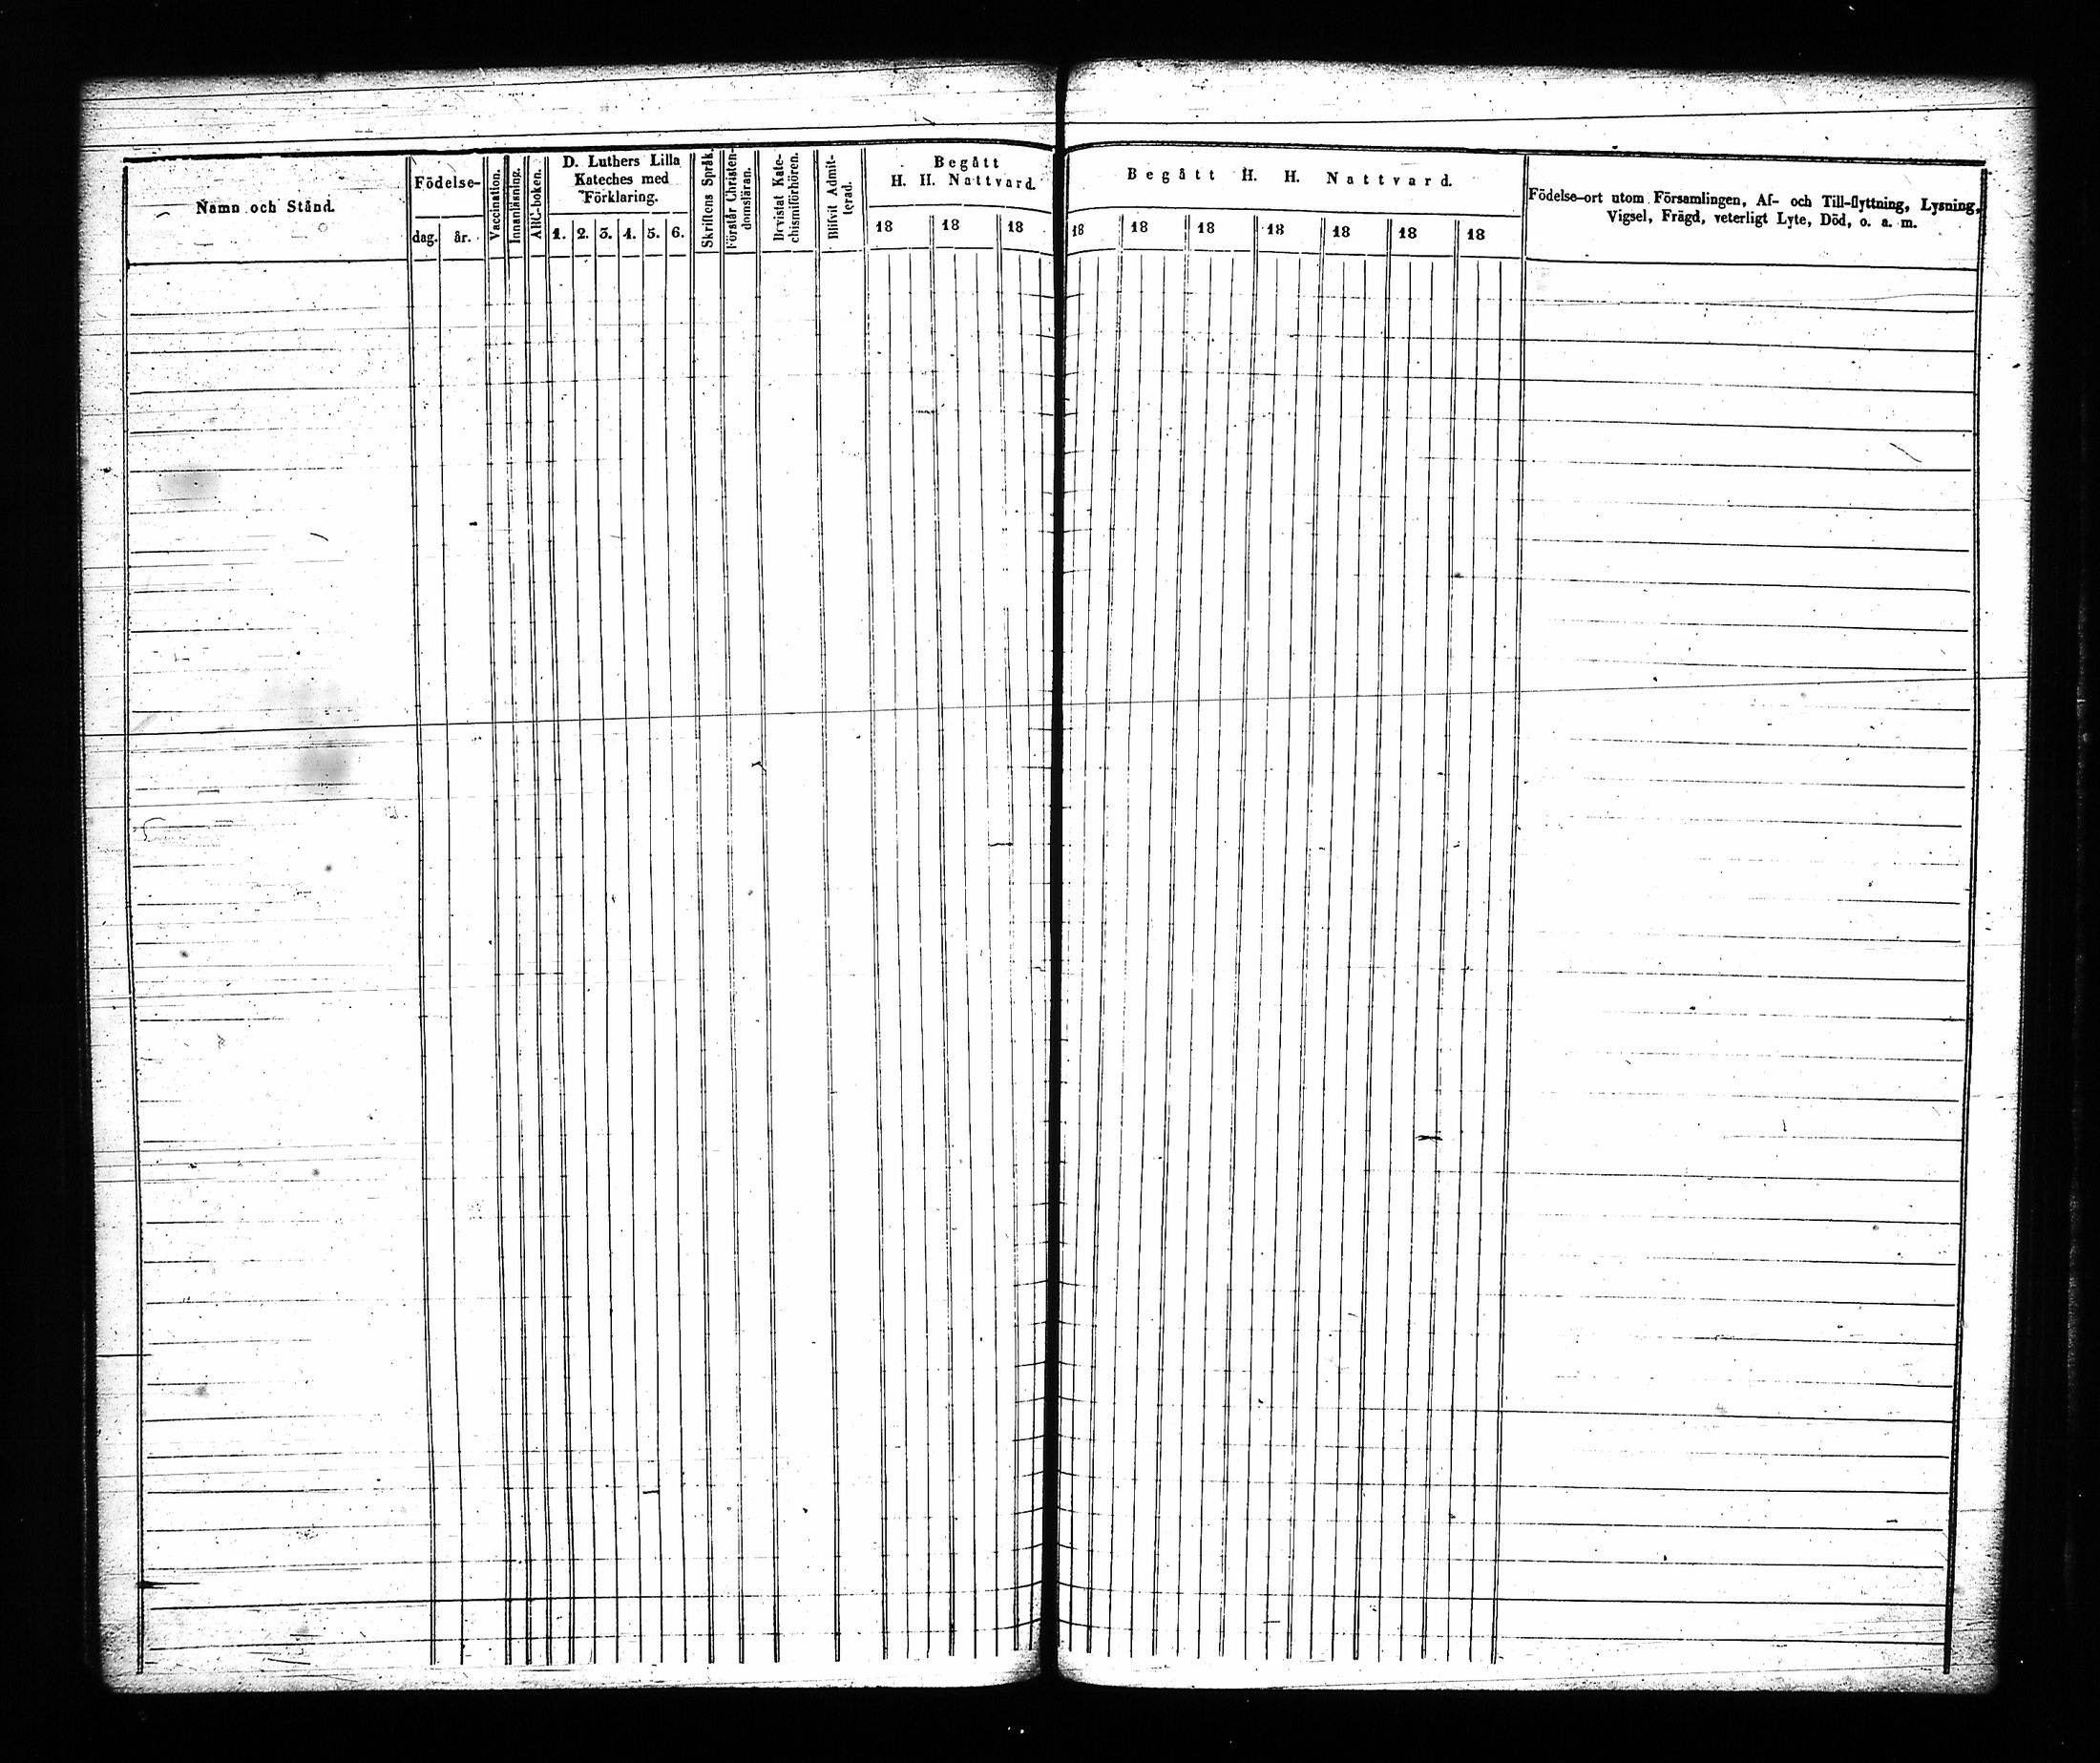 Namn och Stånd.
Födelse-
dag. år.
Vaccination.
Innanläsning.
ABC-boken.
D. Luthers Lilla
Kateches med
Förklaring.
1. 2. 3. 4. 5. 6.
Skriftens Språk.
Förstår Christen-
domsläran.
Bevistat Kate-
chismiförhören.
Blifvit Admit-
terad.
Begått
H. H. Nattvard.
18 18 18
Begått H. H. Nattvard.
18 18 18 18 18 18 18
Födelse-ort utom Församlingen, Af- och Till-flyttning, Lysning,
Vigsel, Frägd, veterligt Lyte, Död, o. a. m.